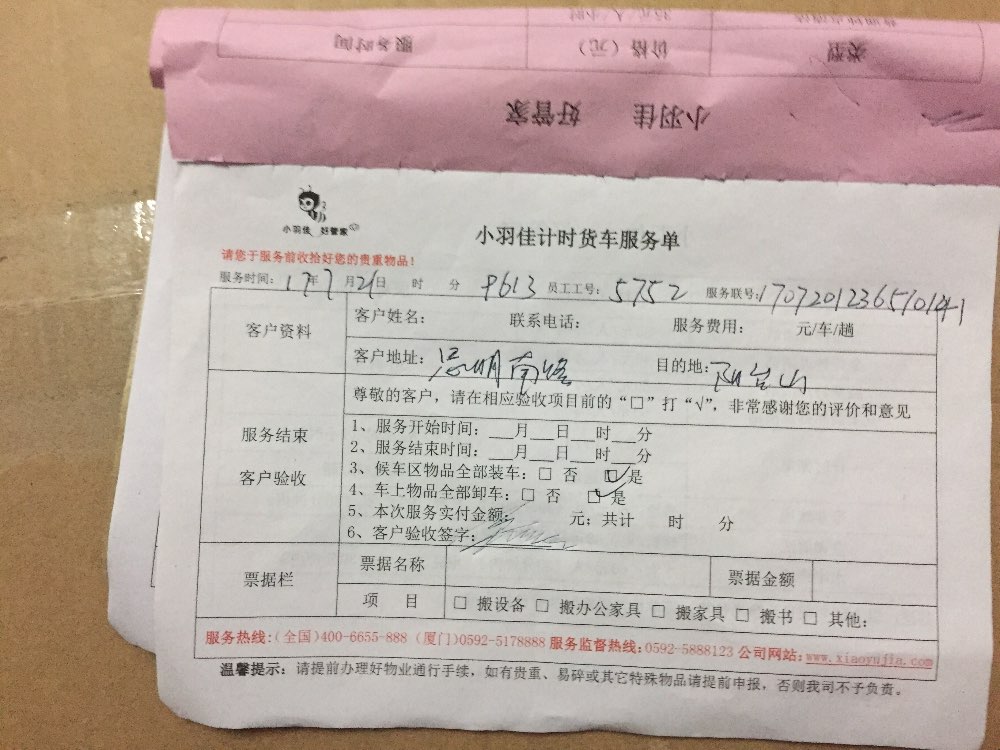 服务时间 价格（元） 类型
小羽佳 好管家
小羽佳 好管家
小羽佳计时货车服务单
请您于服务前收拾好您的贵重物品！
服务时间：17年7月21日 时 分 9613 员工工号：5752 服务联号：
客户资料
客户姓名： 联系电话： 服务费用： 元/车/趟
客户地址：思明南路 目的地：阳台山
服务结束
客户验收
尊敬的客户，请在相应验收项目前的“□”打“√”，非常感谢您的评价和意见
1、服务开始时间：___月___日___时___分
2、服务结束时间：___月___日___时___分
3、候车区物品全部装车：□ 否 ☑ 是
4、车上物品全部卸车：□ 否 ☑ 是
5、本次服务实付金额： 元；共计 时 分
6、客户验收签字：
票据栏
票据名称 票据金额
项 目 □ 搬设备 □ 搬办公家具 □ 搬家具 □ 搬书 □ 其他：
服务热线：（全国）400-6655-888（厦门）0592-5178888 服务监督热线：0592-5888123 公司网站：www.xiaoyujia.com
温馨提示：请提前办理好物业通行手续，如有贵重、易碎或其它特殊物品请提前申报，否则我司不予负责。